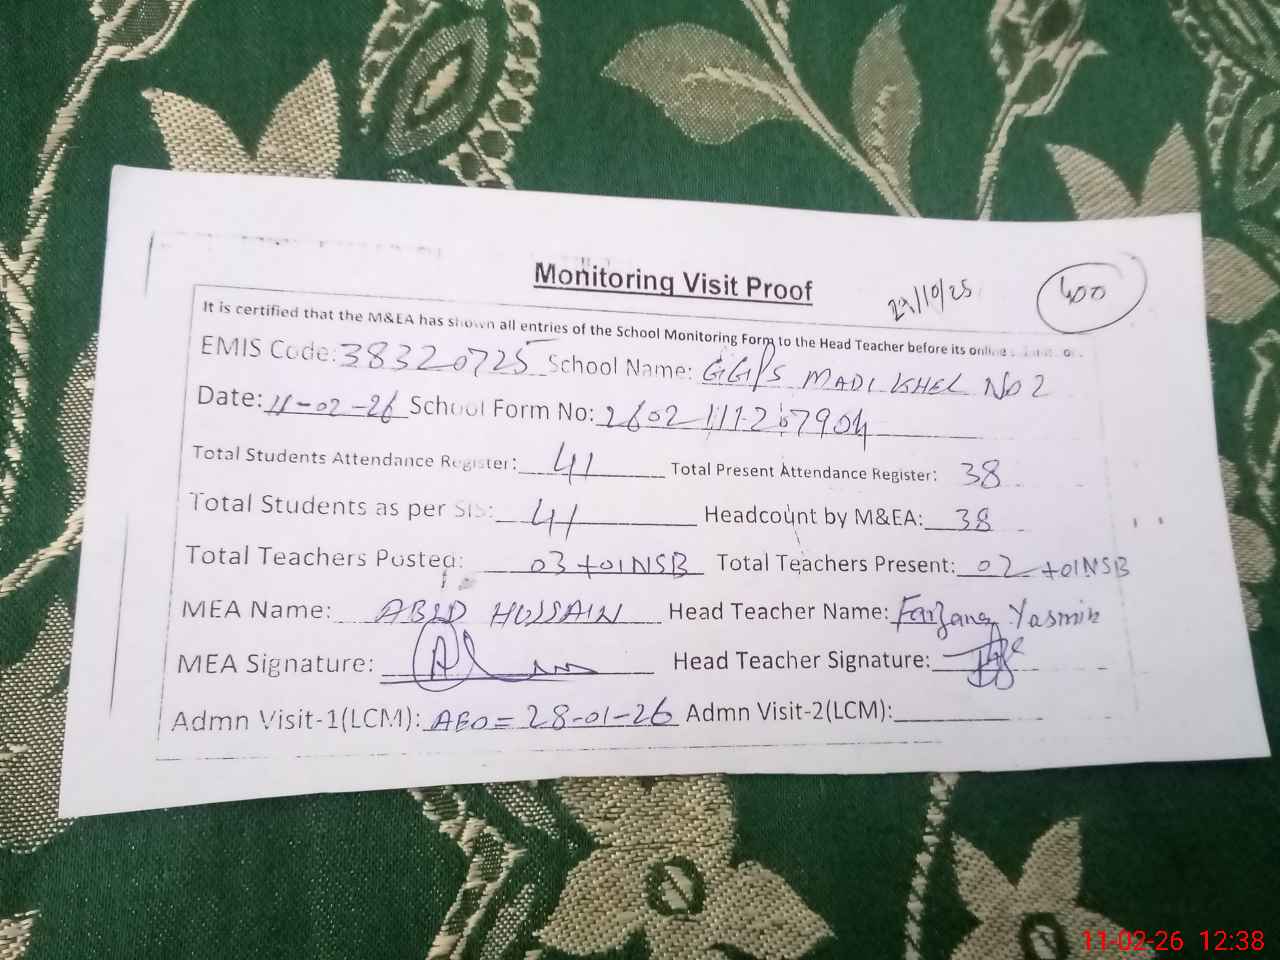 Monitoring Visit Proof
29/10/25
400
It is certified that the M&EA has shown all entries of the School Monitoring Form to the Head Teacher before its online
EMIS Code: 38320725 School Name: GGPS MADI KHEL No 2
Date: 11-02-26 School Form No:
Total Students Attendance Register: 41 Total Present Attendance Register: 38
Total Students as per SIS: 41 Headcount by M&EA: 38
Total Teachers Posted: 03 +01NSB Total Teachers Present: 02 +01NSB
MEA Name: ABID HUSSAIN Head Teacher Name: Farzana Yasmin
MEA Signature: Head Teacher Signature:
Admn Visit-1(LCM): AEO = 28-01-26 Admn Visit-2(LCM):
11-02-26 12:38